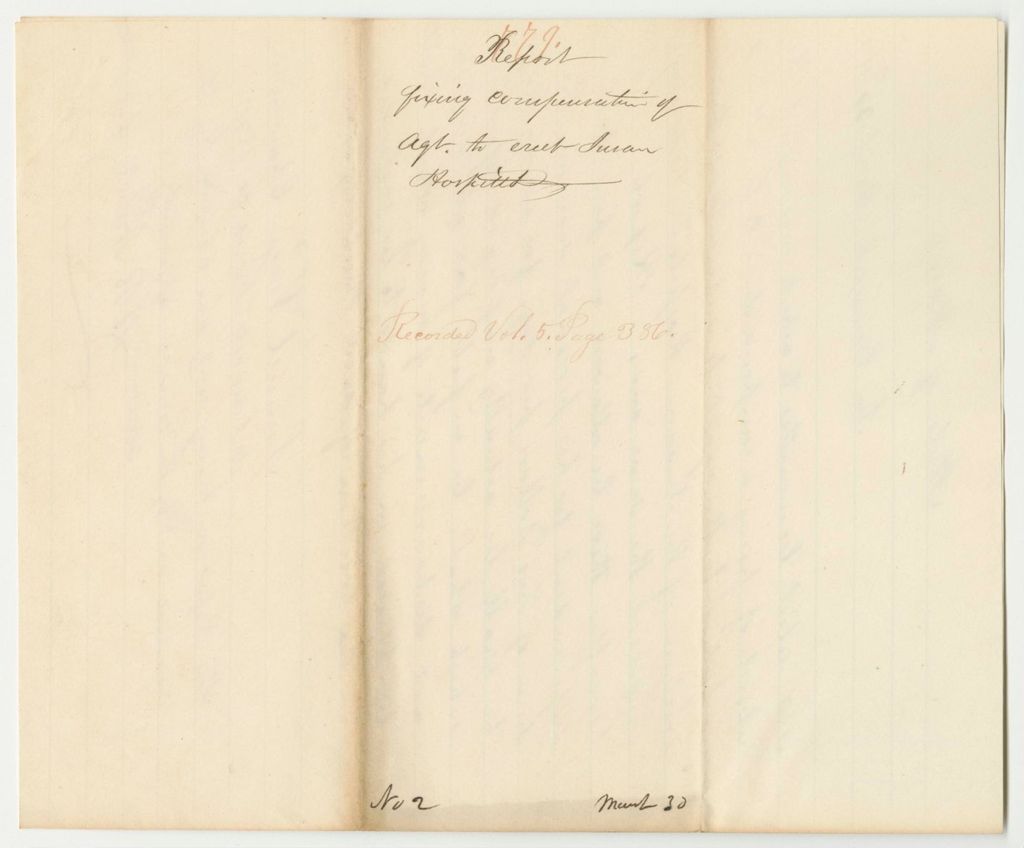 779.
Report
fixing compensation of
Agt. to erect Insan
Hospital
Recorded Vol. 5. Page 336.
No 2
March 30